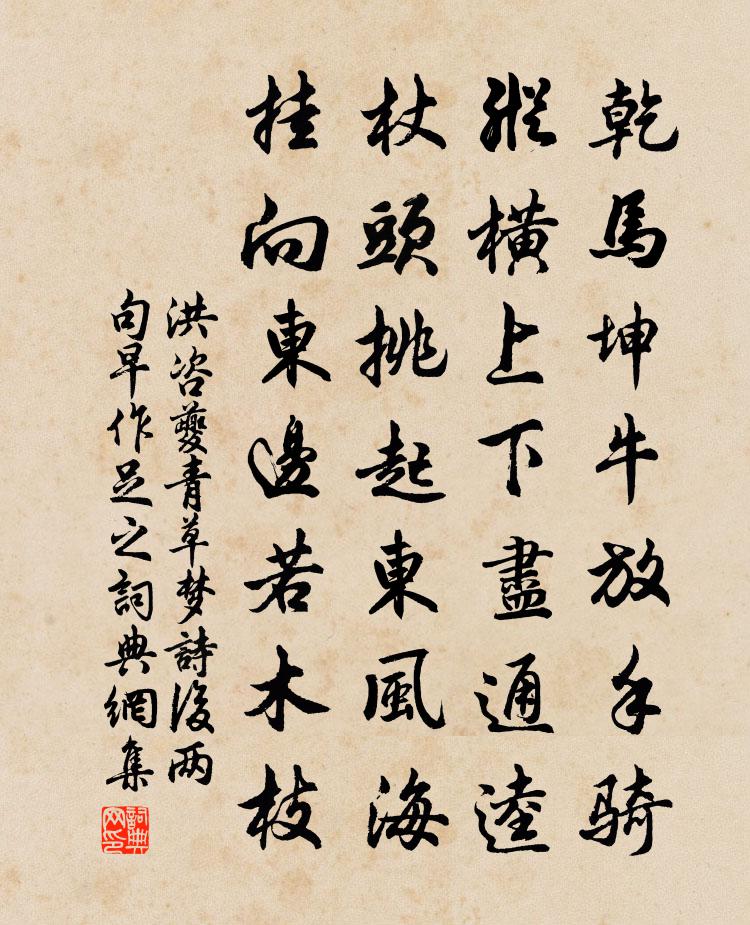 乾馬坤牛放手騎
縱橫上下盡通逵
杖頭挑起東風海
挂向東邊若木枝
洪咨夔青草梦詩後两
句早作足之詞典網集
詞典网印